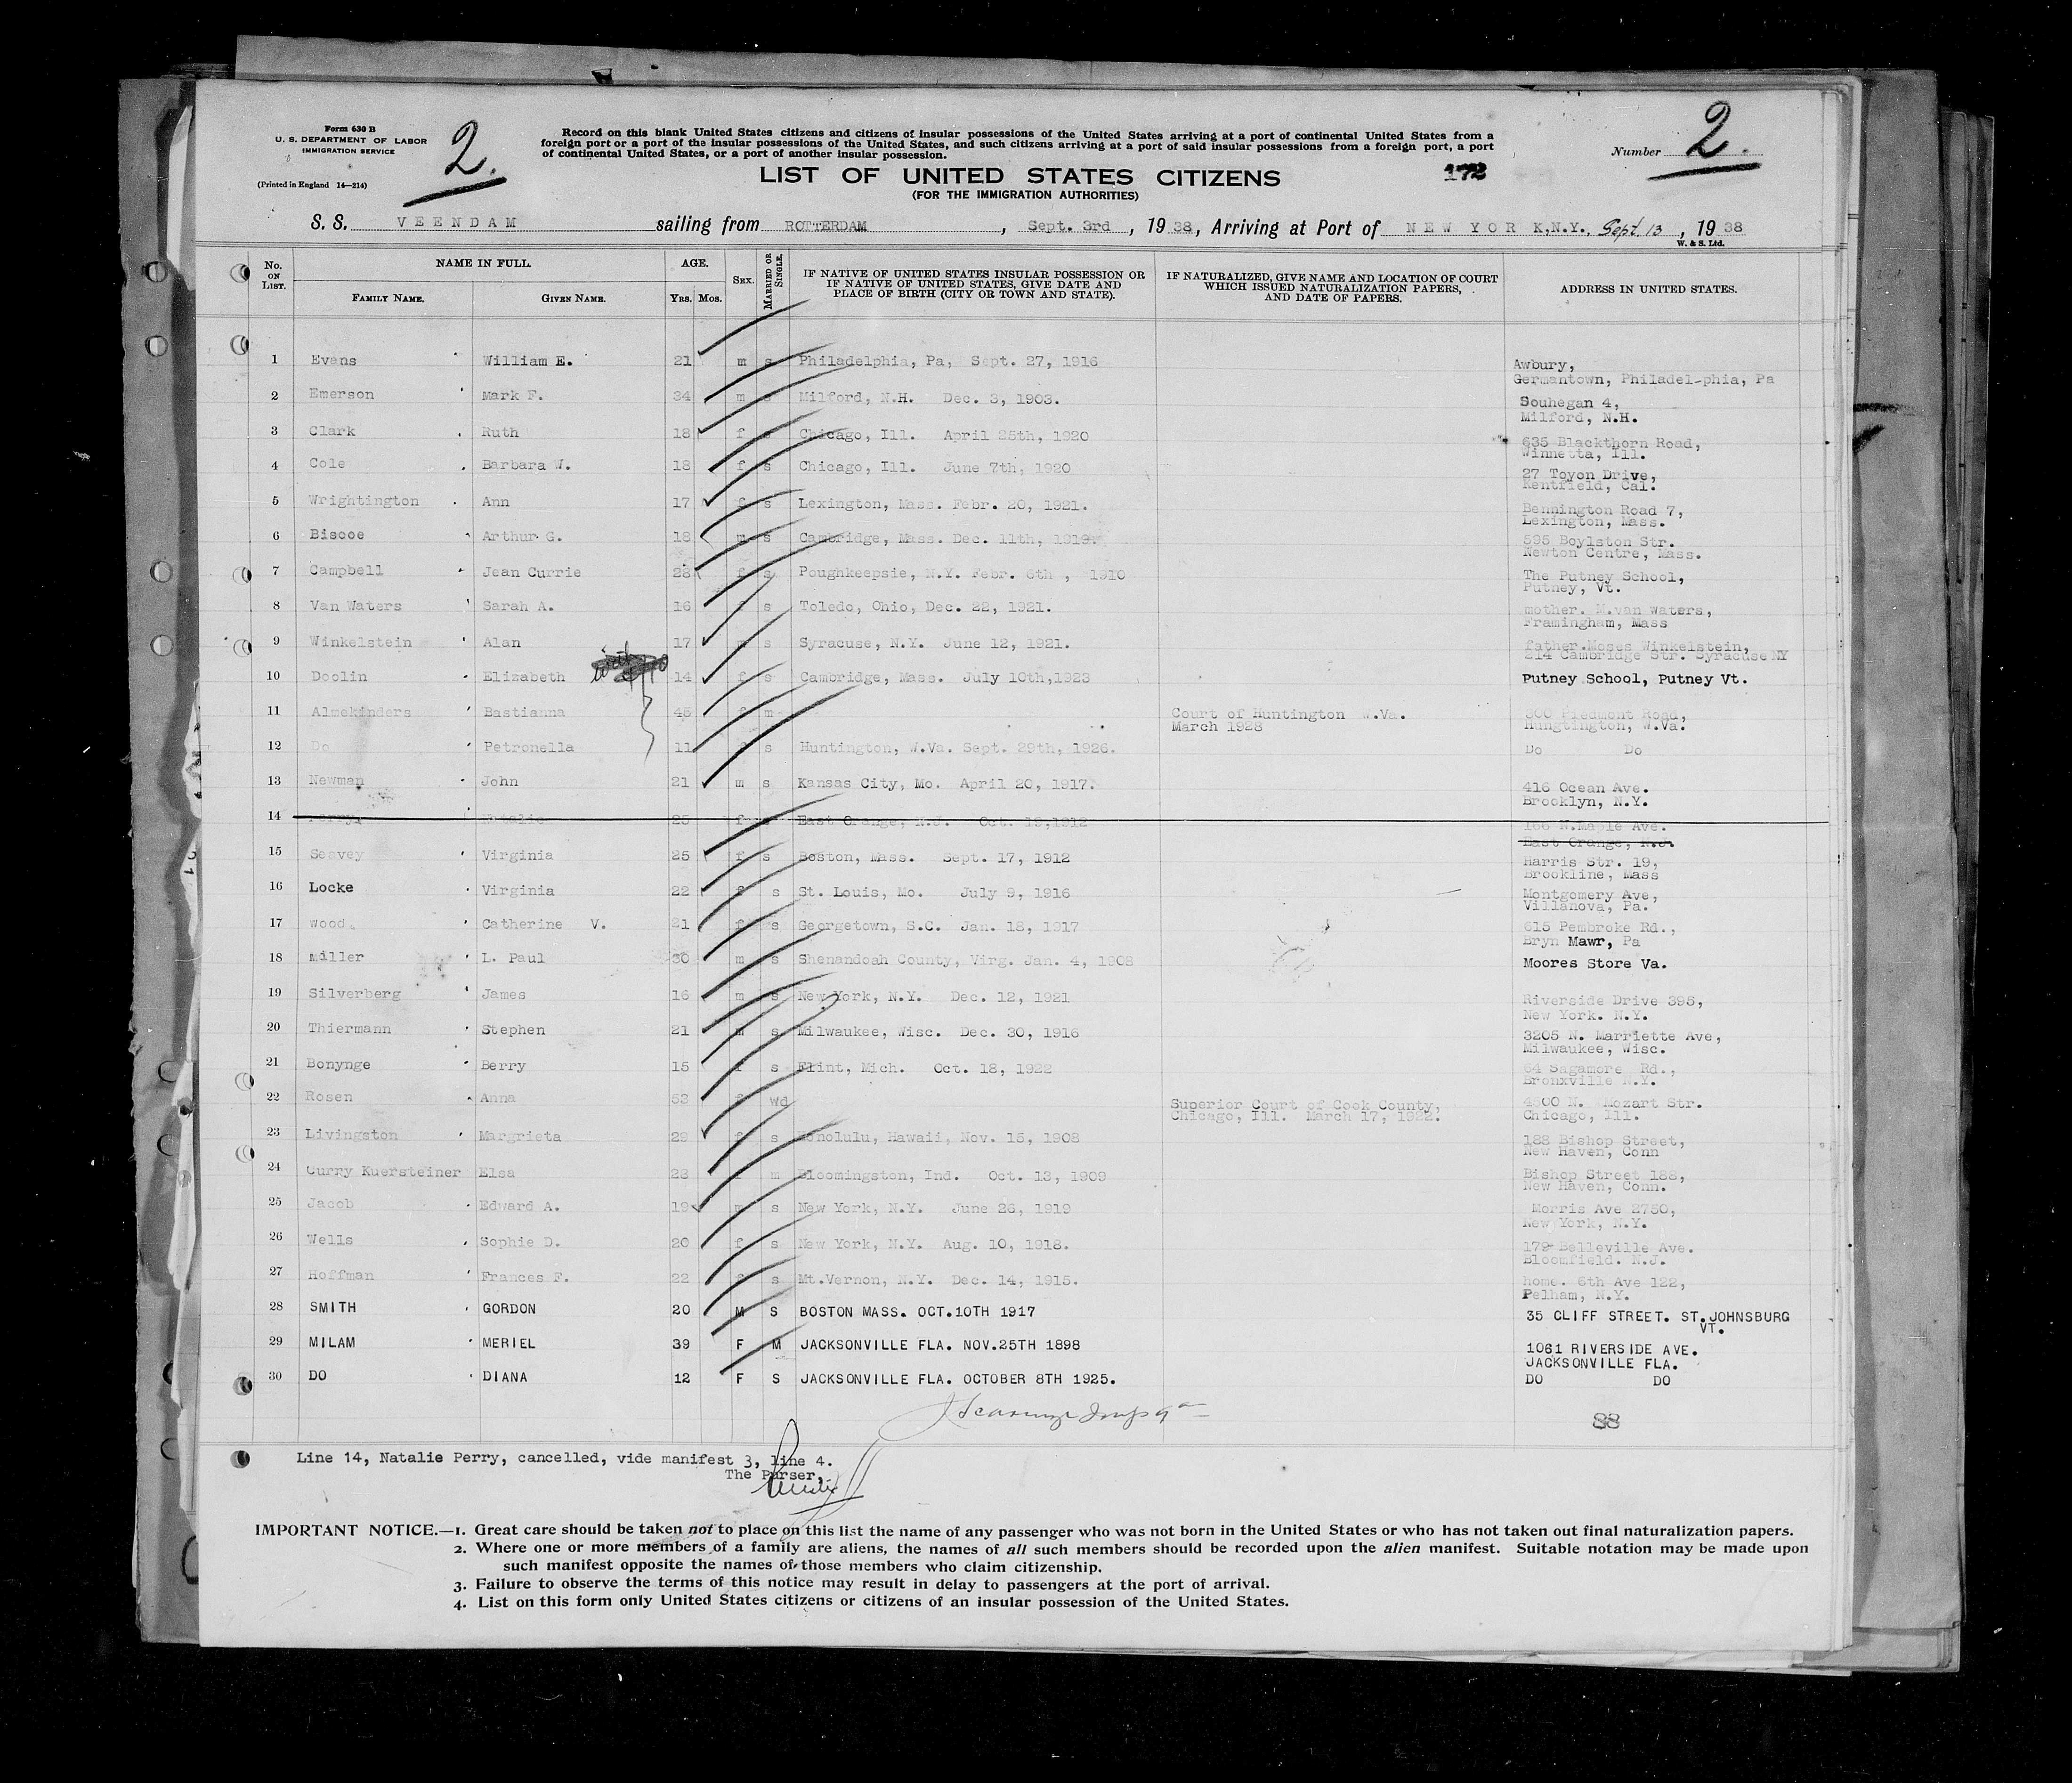 Form 630 B
U. S. DEPARTMENT OF LABOR
IMMIGRATION SERVICE
(Printed in England 14—214)
2.
Record on this blank United States citizens and citizens of insular possessions of the United States arriving at a port of continental United States from a
foreign port or a port of the insular possessions of the United States, and such citizens arriving at a port of said insular possessions from a foreign port, a port
of continental United States, or a port of another insular possession.
Number 2.
LIST OF UNITED STATES CITIZENS
172
(FOR THE IMMIGRATION AUTHORITIES)
S. S. VEENDAM sailing from ROTTERDAM, Sept. 3rd, 1938, Arriving at Port of NEW YORK, N.Y., Sept. 13, 1938
W. & S. Ltd.
No. ON LIST. NAME IN FULL. FAMILY NAME. GIVEN NAME. AGE. YRS. MOS. SEX. MARRIED OR SINGLE. IF NATIVE OF UNITED STATES INSULAR POSSESSION OR IF NATIVE OF UNITED STATES, GIVE DATE AND PLACE OF BIRTH (CITY OR TOWN AND STATE). IF NATURALIZED, GIVE NAME AND LOCATION OF COURT WHICH ISSUED NATURALIZATION PAPERS, AND DATE OF PAPERS. ADDRESS IN UNITED STATES.
1 Evans William E. 21 m s Philadelphia, Pa, Sept. 27, 1916 Awbury,
Germantown, Philadel-phia, Pa
2 Emerson Mark F. 34 m s Milford, N.H. Dec. 3, 1903. Souhegan 4,
Milford, N.H.
3 Clark Ruth 18 f s Chicago, Ill. April 25th, 1920 635 Blackthorn Road,
Winnetta, Ill.
4 Cole Barbara W. 18 f s Chicago, Ill. June 7th, 1920 27 Toyon Drive,
Kentfield, Cal.
5 Wrightington Ann 17 f s Lexington, Mass. Febr. 20, 1921. Bennington Road 7,
Lexington, Mass.
6 Biscoe Arthur G. 18 m s Cambridge, Mass. Dec. 11th, 1919. 595 Boylston Str.
Newton Centre, Mass.
7 Campbell Jean Currie 28 f s Poughkeepsie, N.Y. Febr. 6th, 1910 The Putney School,
Putney, Vt.
8 Van Waters Sarah A. 16 f s Toledo, Ohio, Dec. 22, 1921. mother. M.van Waters,
Framingham, Mass
9 Winkelstein Alan 17 m s Syracuse, N.Y. June 12, 1921. father.Moses Winkelstein,
214 Cambridge Str. Syracuse NY
10 Doolin Elizabeth with 14 f s Cambridge, Mass. July 10th,1923 Putney School, Putney Vt.
11 Almekinders Bastianna 45 f m Court of Huntington W.Va. 300 Piedmont Road,
March 1928 Hungtington, W.Va.
12 Do Petronella 11 s Huntington, W.Va. Sept. 29th, 1926. Do Do
13 Newman John 21 m s Kansas City, Mo. April 20, 1917. 416 Ocean Ave.
Brooklyn, N.Y.
14 Perry Natalie 25 f East Orange, N.J. Oct. 19,1912 186 N.Maple Ave.
East Orange, N.J.
15 Seavey Virginia 25 f s Boston, Mass. Sept. 17, 1912 Harris Str. 19,
Brookline, Mass
16 Locke Virginia 22 f s St. Louis, Mo. July 9, 1916 Montgomery Ave,
Villanova, Pa.
17 wood. Catherine V. 21 f s Georgetown, S.C. Jan. 18, 1917 615 Pembroke Rd.,
Bryn Mawr, Pa
18 Miller L. Paul 30 m s Shenandoah County, Virg. Jan. 4, 1908 Moores Store Va.
19 Silverberg James 16 m s New York, N.Y. Dec. 12, 1921 Riverside Drive 395,
New York. N.Y.
20 Thiermann Stephen 21 m s Milwaukee, Wisc. Dec. 30, 1916 3205 N. Marriette Ave,
Milwaukee, Wisc.
21 Bonynge Berry 15 f s Flint, Mich. Oct. 18, 1922 64 Sagamore Rd.,
Bronxville N.Y.
22 Rosen Anna 53 f Wd Superior Court of Cook County, 4800 N. Mozart Str.
Chicago, Ill. March 17, 1922. Chicago, Ill.
23 Livingston Margrieta 29 f s Honolulu, Hawaii, Nov. 15, 1908 188 Bishop Street,
New Haven, Conn
24 Curry Kuersteiner Elsa 28 m Bloomingston, Ind. Oct. 13, 1909 Bishop Street 188,
New Haven, Conn.
25 Jacob Edward A. 19 m s New York, N.Y. June 26, 1919 Morris Ave 2750,
New York, N.Y.
26 Wells Sophie D. 20 f s New York, N.Y. Aug. 10, 1918. 179 Belleville Ave.
Bloomfield. N.J.
27 Hoffman Frances F. 22 f s Mt.Vernon, N.Y. Dec. 14, 1915. home. 6th Ave 122,
Pelham, N.Y.
28 SMITH GORDON 20 M S BOSTON MASS. OCT.10TH 1917 35 CLIFF STREET. ST.JOHNSBURG
VT.
29 MILAM MERIEL 39 F M JACKSONVILLE FLA. NOV.25TH 1898 1061 RIVERSIDE AVE.
JACKSONVILLE FLA.
30 DO DIANA 12 F S JACKSONVILLE FLA. OCTOBER 8TH 1925. DO DO
88
Line 14, Natalie Perry, cancelled, vide manifest 3, line 4.
The Purser,
IMPORTANT NOTICE.—1. Great care should be taken not to place on this list the name of any passenger who was not born in the United States or who has not taken out final naturalization papers.
2. Where one or more members of a family are aliens, the names of all such members should be recorded upon the alien manifest. Suitable notation may be made upon
such manifest opposite the names of those members who claim citizenship.
3. Failure to observe the terms of this notice may result in delay to passengers at the port of arrival.
4. List on this form only United States citizens or citizens of an insular possession of the United States.